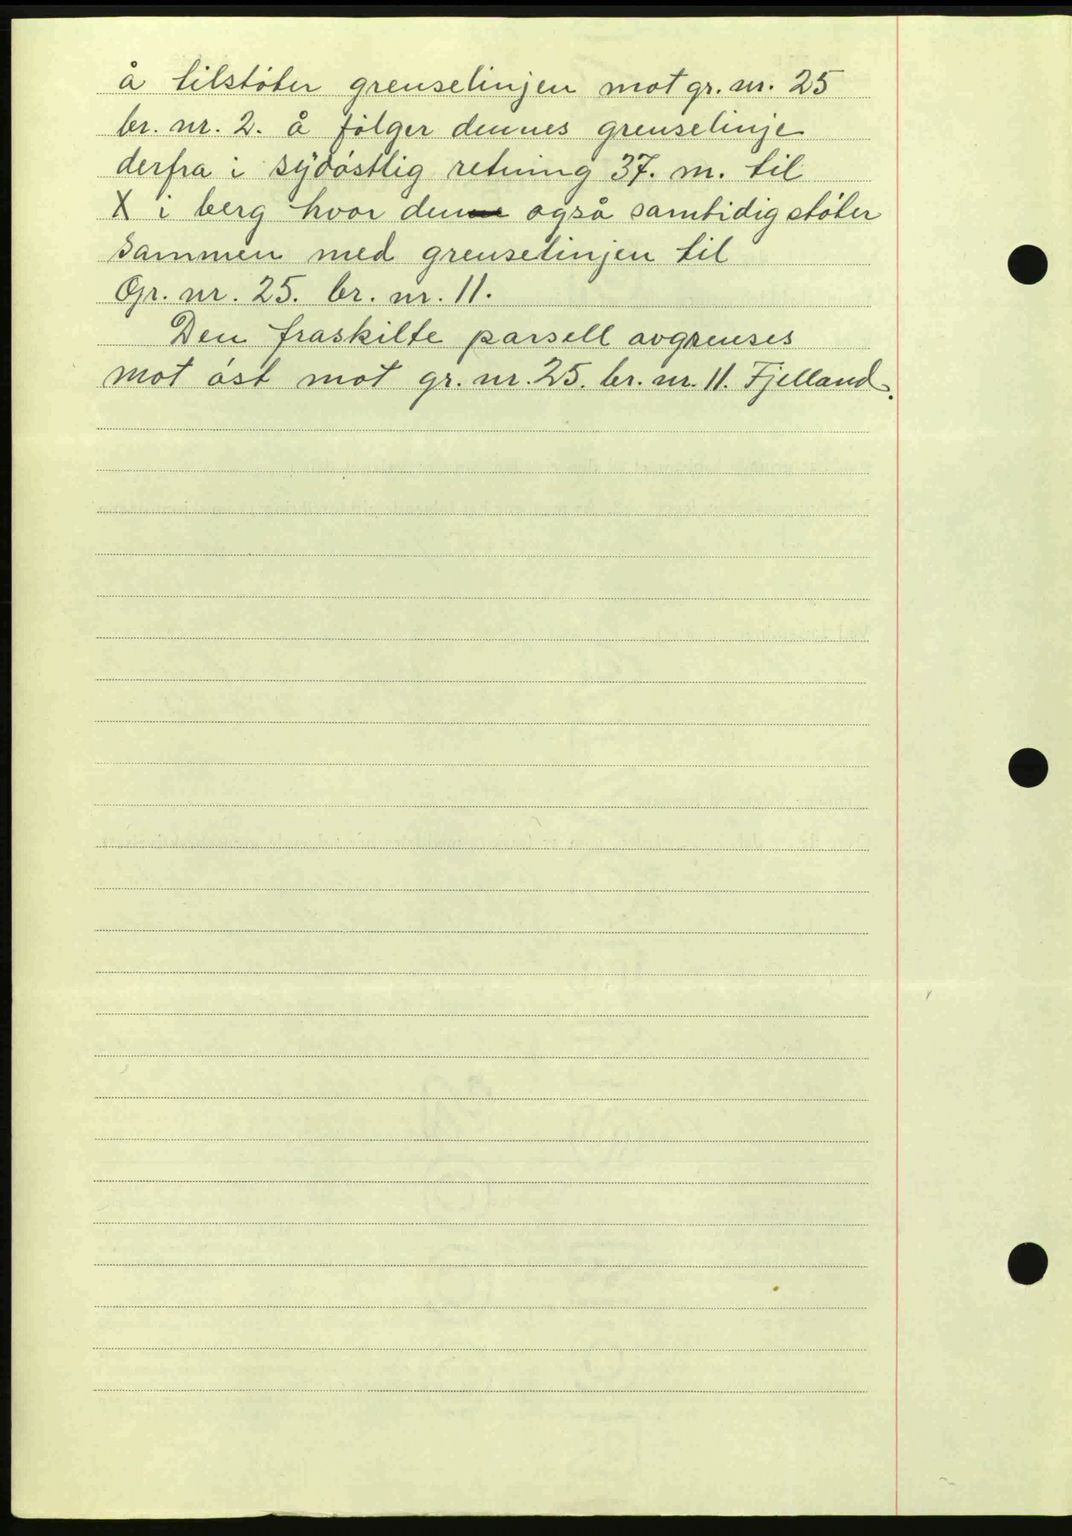 å tilstöter grenselinjen mot gr. nr. 25
br. nr. 2. å fölger dennes grenselinje
derfra i sydöstlig retning 37. m. til
X i berg hvor den også samtidig stöter
sammen med grenselinjen til
Gr. nr. 25. br. nr. 11.
Den fraskilte parsell avgrenses
mot öst mot gr. nr. 25. br. nr. 11. Fjelland.